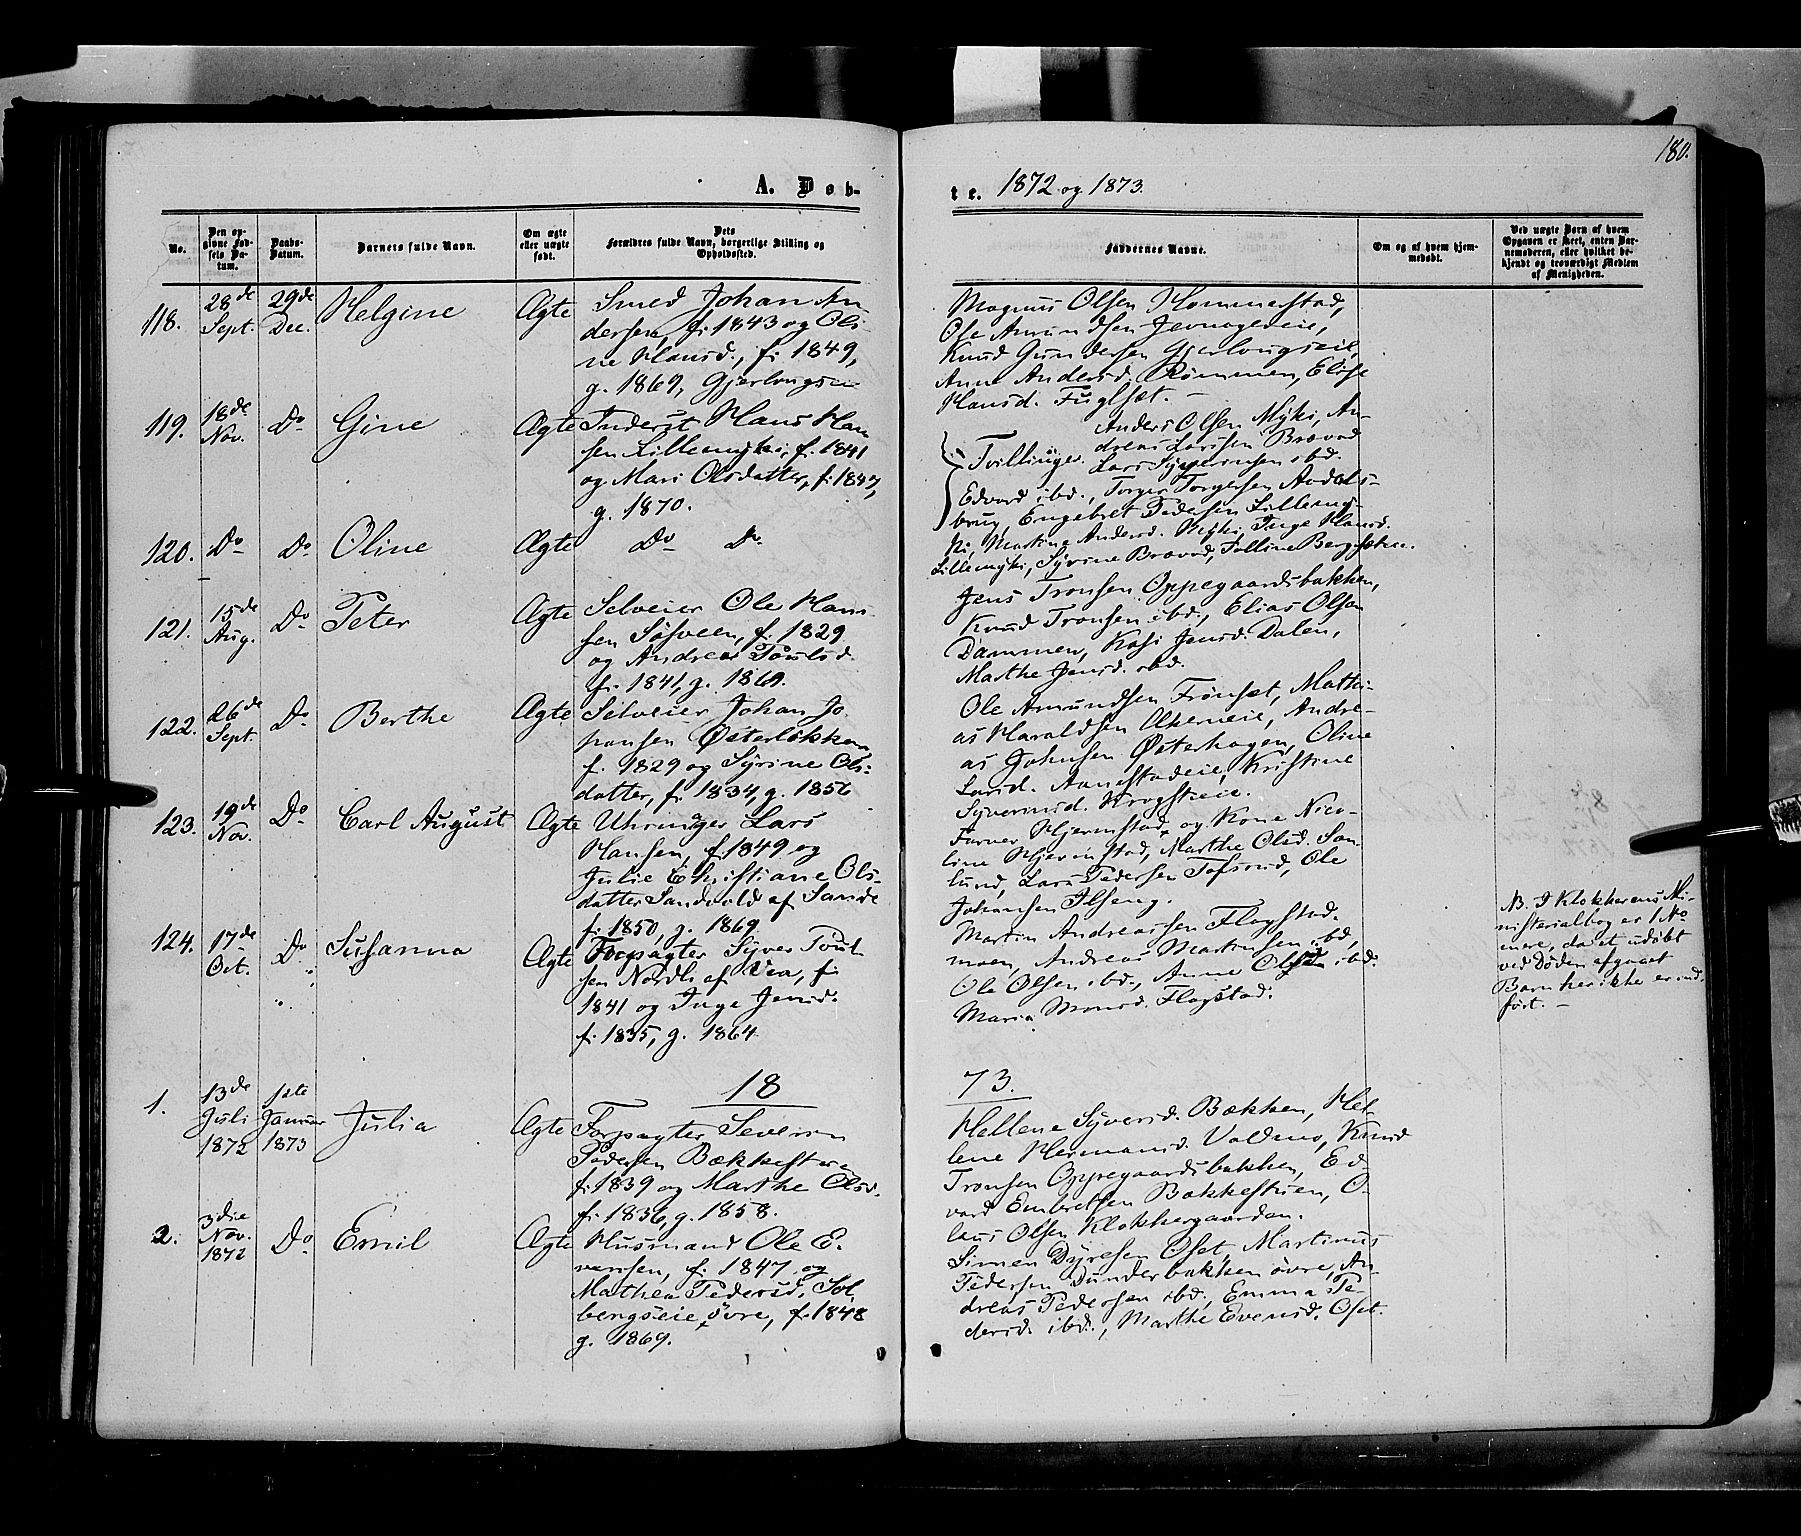 180.
A. Døb-
te. 1872 og 1873.
No.
Den opgivne Fødsels Datum.
Daabs-Datum.
Barnets fulde Navn.
Om ægte eller uægte født.
Dets Forældres fulde Navn, borgerlige Stilling og Opholdssted.
Faddernes Navne.
Om og af hvem hjemmedøbt.
Ved uægte Børn af hvem Opgaven er skeet, enten Barnemoderen, eller hvilket bekjendt og troværdigt Medlem af Menigheden.
118. 28de Sept. 29de Dec. Helgine Ægte
Smed Johan An
dersen, f. 1843 og Oli-
ne Hansd., f. 1849,
g. 1869, Gjerlougsei
Magnus Olsen Hommerstad,
Ole Amundsen Jevnagereie,
Knud Gundersen Gjerlougseie,
Anne Andersd. Rømmen, Elise
Hansd. Fuglset. –
119. 18de Nov. Do Gine Ægte
Inderst Hans Han
sen Lillemyki, f. 1841
og Mari Olsdatter, f. 1847,
g. 1870.
Tvillinger.
Anders Olsen Myki, An-
dreas Larssen Bravad
Lars Syverinsen ibd.
Edvard ibd., Torger Torgersen Aadals-
brug, Engebret Pedersen Lillemy-
ki, Martine Andersd. Myki, Inge Hansd.
Lillemyki, Syrine Bravad, Polline Bergsæker.
120. Do Do Oline Ægte Do Do
121. 15de Aug. Do Peter Ægte
Selveier Ole Han
sen Søsveen, f. 1829
og Andrea Poulsd.
f. 1841, g. 1869.
Jens Tronsen Oppegaardsbakken,
Knud Tronsen ibd., Elias Olsen
Dammen, Kasi Jensd. Dalen,
Mathe Jensd. ibd.
122. 26de Sept. Do Berthe Ægte
Selveier Johan Jo
hansen Østerløkken
f. 1829 og Syrine Ols-
datter, f. 1834, g. 1856
Ole Amundsen Frønset, Mathi-
as Haraldsen Akereie, Andre-
as Johnsen Østerhagen, Oline
Larsd. Aanestadeie, Kristine
Syverinsd. Krogsteie.
123. 19de Nov. Do Carl August Ægte
Uhrmager Lars
Hansen, f. 1849 og
Julie Christiane Ols-
datter Sandvold af Sande
f. 1850, g. 1869.
Farver Hjermstad og Kone Nico-
line Hjermstad, Marthe Olsd. San-
lund, Lars Pedersen Tofsrud, Ole
Johansen Ilseng.
124. 17de Oct. Do Susanna Ægte
Forpagter Syver Poul
sen Nordli af Vea, f.
1841 og Inge Jensd.
f. 1835, g. 1864.
Martin Andreassen Flagstad.
moen, Andreas Martinsen ibd,
Ole Olsen ibd., Anne Olsd. ibd.
Maria Monsd. Flagstad.
NB. I Klokkerens Mi-
nisterialbog er 1 No
mere, da et udøbt
ved Døden afgaaet
Barn her ikke er ind-
ført. –
18 73.
1. 13de Juli 1872 1ste Januar 1873 Julia Ægte
Forpagter Severin
Pedersen Bækkestuen
f. 1839 og Marthe Olsd.
f. 1836, g. 1858.
Hellene Syversd. Bækken, Hel-
lene Hermansd. Valdmo, Knud
Tronsen Oppegaardsbakken, Ed-
vard Embretsen Bakkestuen, O-
laus Olsen Klokkergaarden.
2. 3die Nov. 1872 Do Emil Ægte
Husmand Ole E-
vensen, f. 1847 og
Mathea Pedersd. Sol
bergseie øvre, f. 1848
g. 1869.
Simen Dyresen Oset, Martinus
Pedersen Dunderbakken øvre, An-
dreas Pedersen ibd., Emma Pe-
dersd. ibd., Marthe Evensd. Oset.